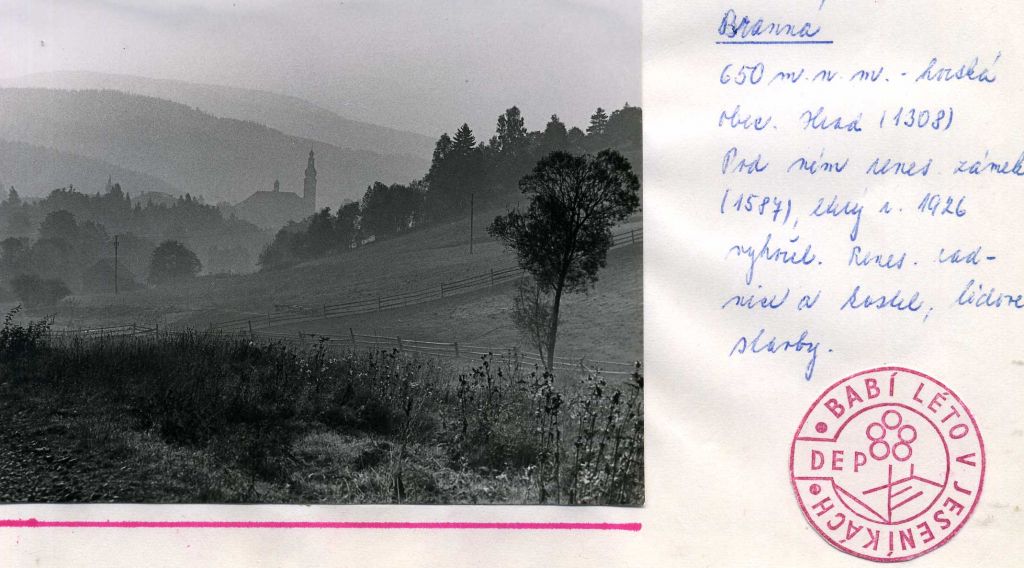 Branná
650 m. n. m. - horská
obec. Hrad (1308)
Pod ním renes. zámek
(1587), který r. 1926
vyhořel. Renes. rad-
nice a kostel, lidové
stavby.
• BABÍ LÉTO V JESENÍKÁCH •
DEP